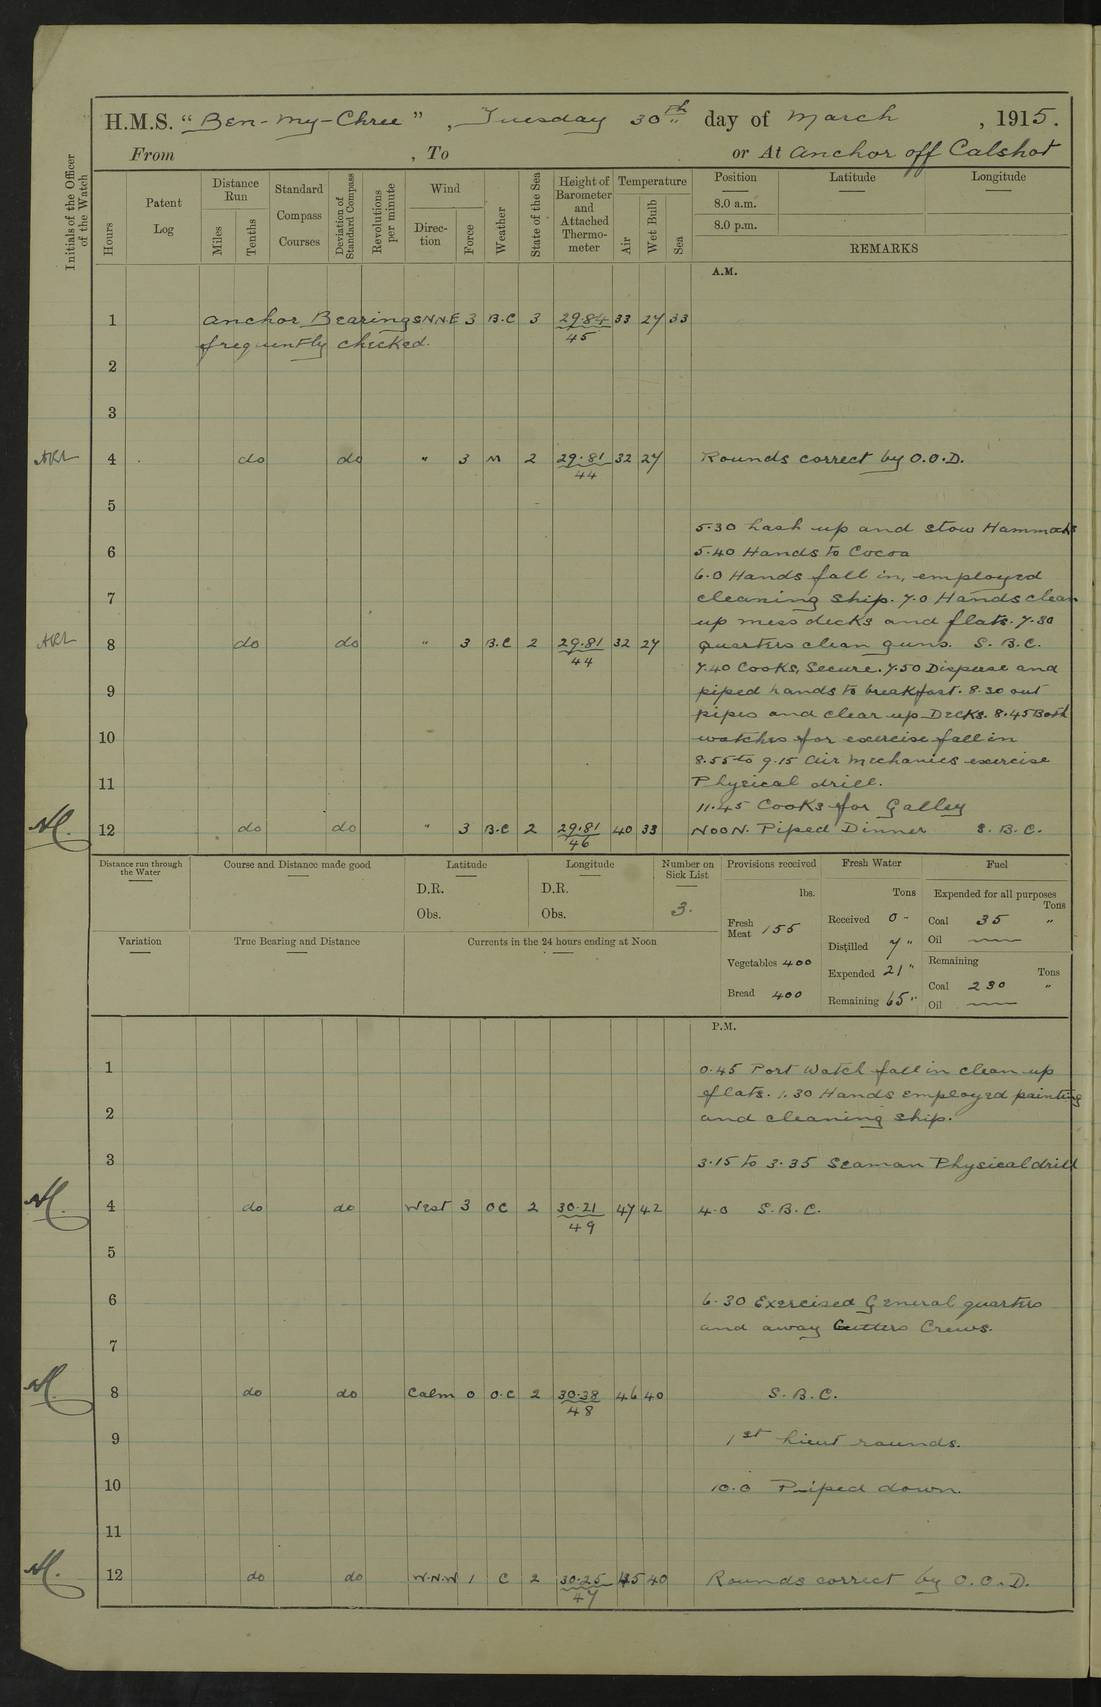 H.M.S. "Ben-my-Chree", Tuesday 30th day of March, 1915.
From , To or At Anchor off Calshot
Initials of the Officer of the Watch
Hours
Patent Log
Distance Run
Miles
Tenths
Standard Compass Courses
Deviation of Standard Compass
Revolutions per minute
Wind
Direction
Force
Weather
State of the Sea
Height of Barometer and Attached Thermometer
Temperature
Air
Wet Bulb
Sea
Position
Latitude
Longitude
8.0 a.m.
8.0 p.m.
REMARKS
A.M.
1 Anchor Bearings N.N.E 3 B.C 3 29.84 33 27 33
frequently checked. 45
2
3
4 do do " 3 M 2 29.81 32 27 Rounds correct by O.O.D.
44
5
5.30 Lash up and stow Hammocks
6 5.40 Hands to Cocoa
6.0 Hands fall in, employed
7 cleaning ship. 7.0 Hands clean
up mess decks and flats. 7.30
8 do do " 3 B.C 2 29.81 32 27 Quarters clean guns. S.B.C.
44
7.40 Cooks, Secure. 7.50 Disperse and
9 piped hands to breakfast. 8.30 out
pipes and clear up Decks. 8.45 Both
10 watches for exercise fall in
8.55 to 9.15 Air Mechanics exercise
11 Physical drill.
11.45 Cooks for Galley
12 do do " 3 B.C 2 29.81 40 33 NOON. Piped Dinner S.B.C.
46
Distance run through the Water
Course and Distance made good
Latitude
D.R.
Obs.
Longitude
D.R.
Obs.
Number on Sick List
3.
Provisions received
lbs.
Fresh Meat 155
Vegetables 400
Bread 400
Fresh Water
Tons
Received 0 "
Distilled 7 "
Expended 21 "
Remaining 65 "
Fuel
Expended for all purposes
Tons
Coal 35 "
Oil
Remaining
Tons
Coal 230 "
Oil
Variation
True Bearing and Distance
Currents in the 24 hours ending at Noon
P.M.
1 0.45 Port Watch fall in clean up
flats. 1.30 Hands employed painting
2 and cleaning ship.
3 3.15 to 3.35 Seaman Physical drill
4 do do West 3 OC 2 30.21 47 42 4.0 S.B.C.
49
5
6 6.30 Exercised General quarters
and away Cutters Crews.
7
8 do do Calm 0 O.C 2 30.38 46 40 S.B.C.
48
9 1st Lieut rounds.
10 10.0 Piped down.
11
12 do do W.N.W 1 C 2 30.25 45 40 Rounds correct by O.O.D.
47